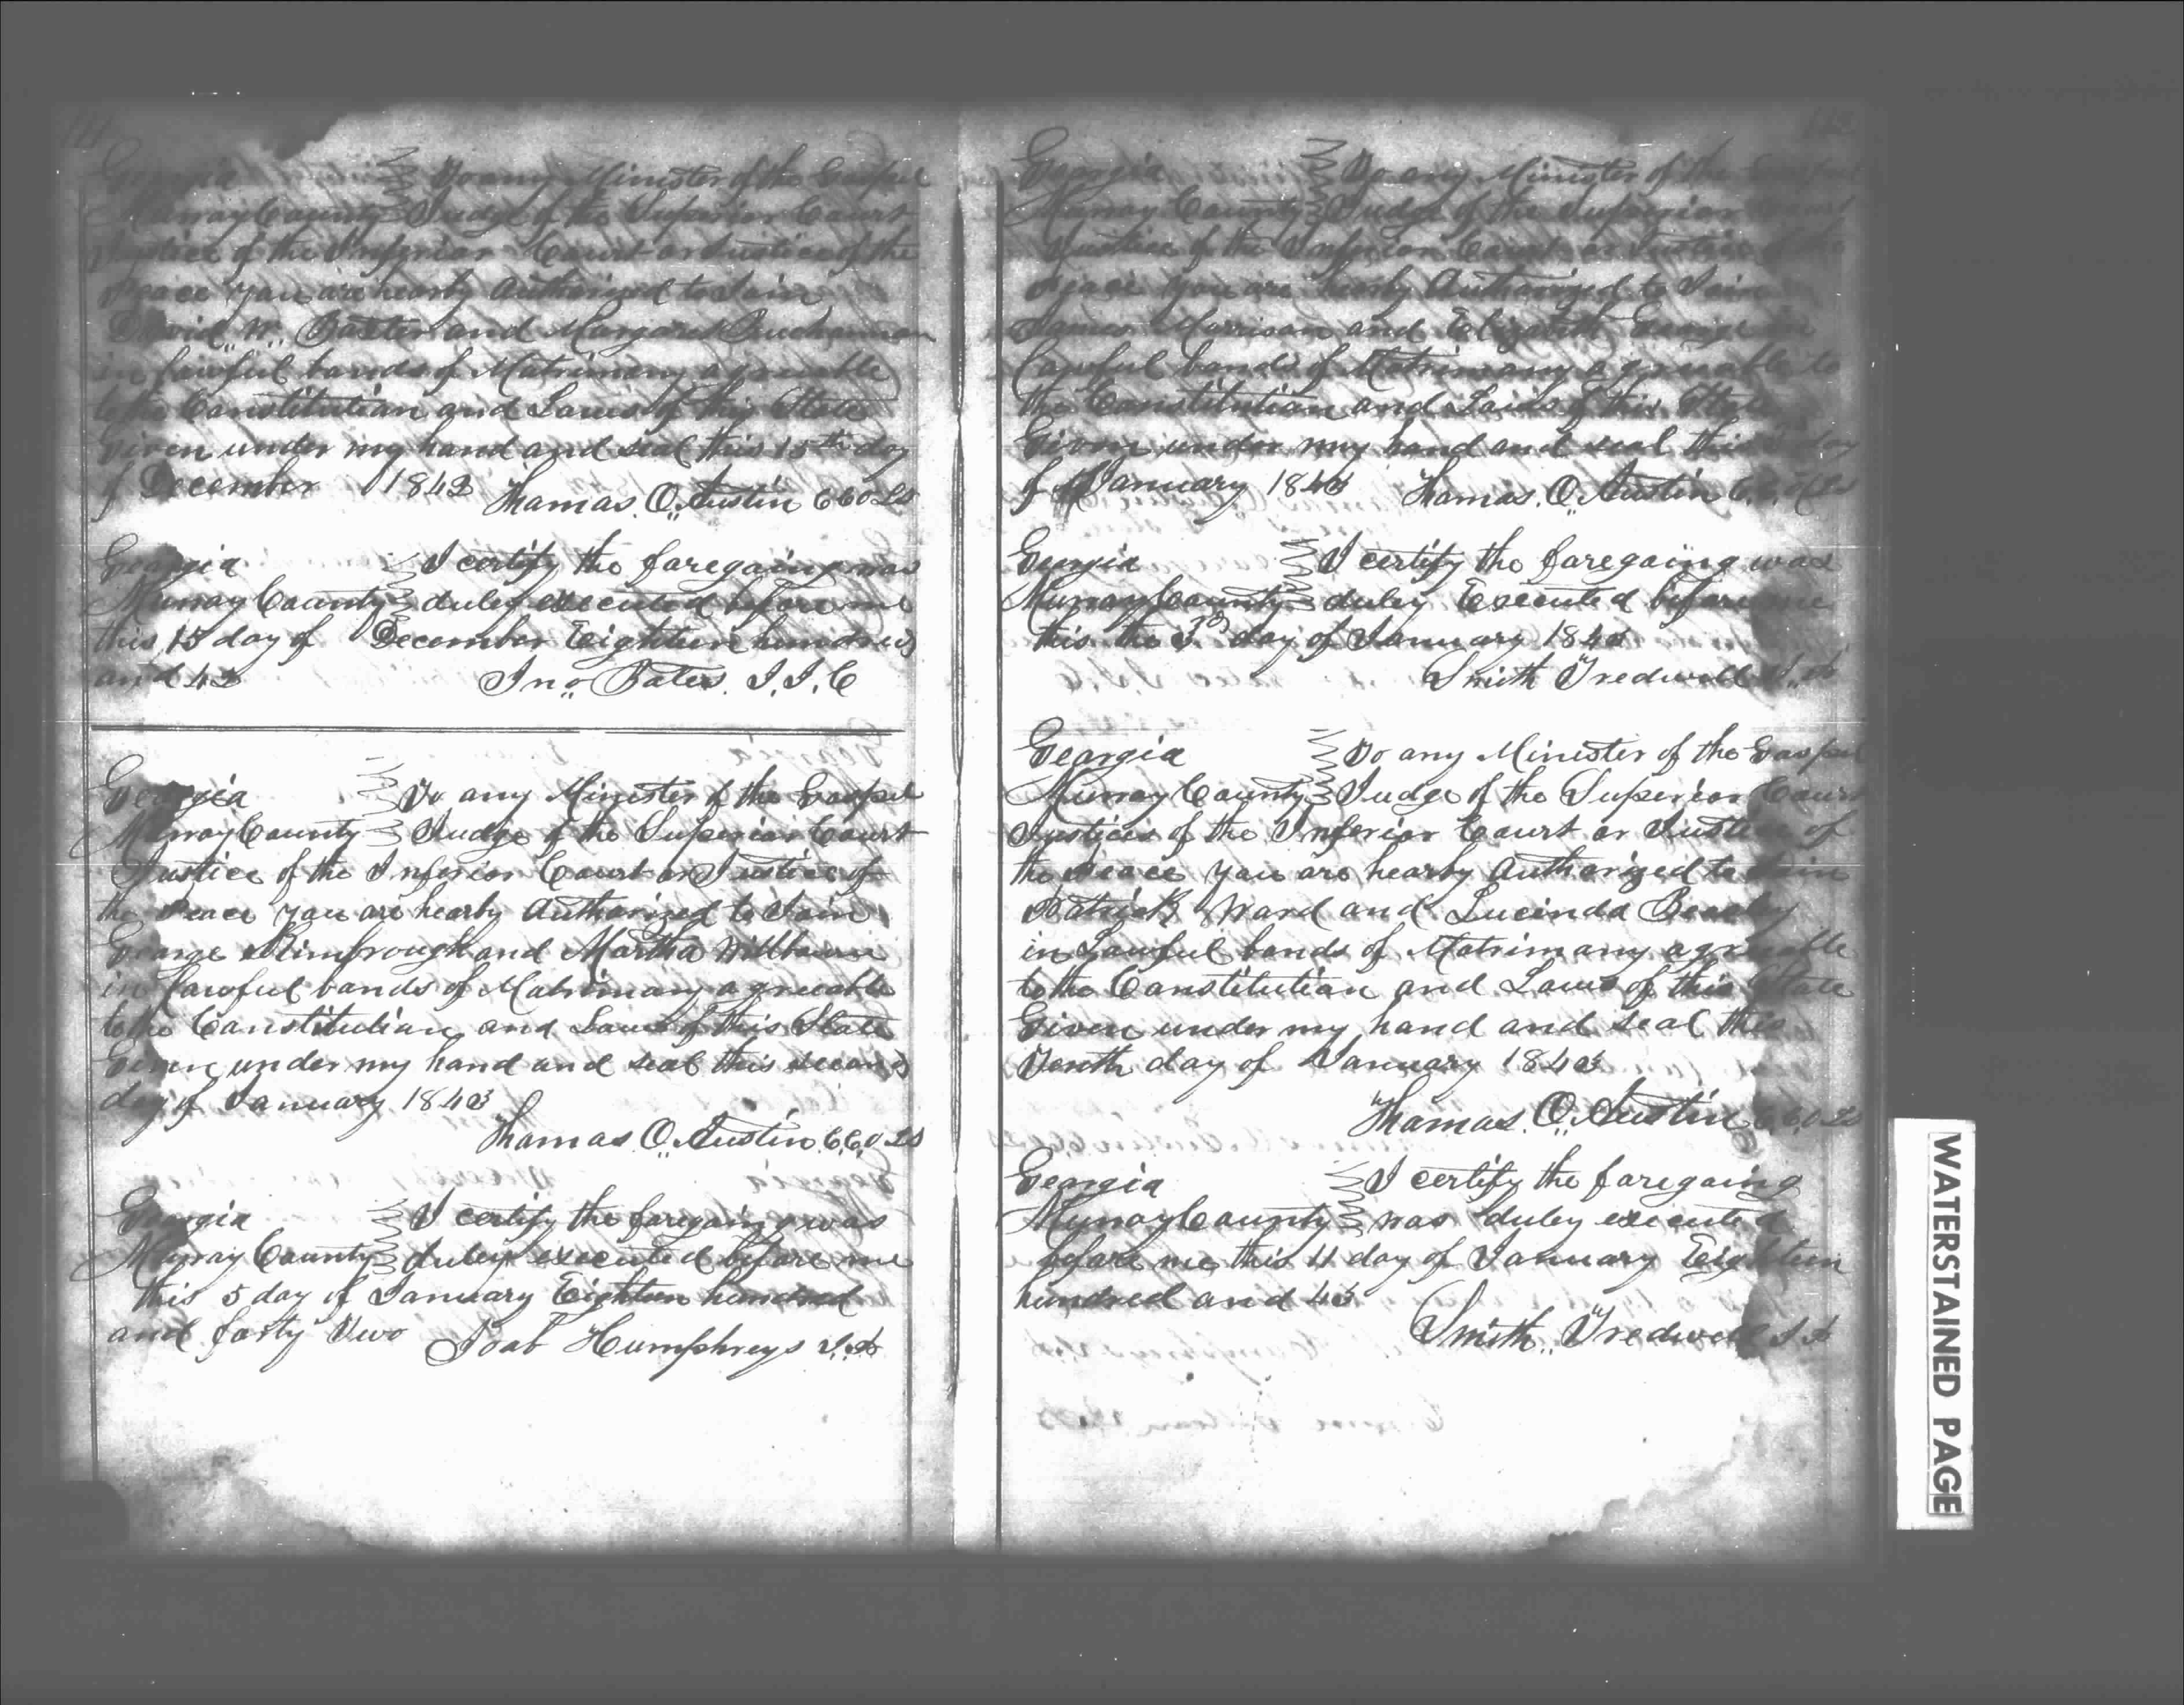 Georgia To any Minister of the Gospel
Murray County Judge of the Superior Court
Justice of the Inferior Court or Justice of the
Peace you are hearby Authorized to Join
David,, W,, Baxter and Margaret Buchannan
in lawful bands of Matrimony agreeable
to the Constitution and Laws of this State
Given under my hand and seal this 15th day
of December 1842 Thomas. O,, Austin CCO LS
Georgia I certify the foregoing was
Murray County duley executed before me
this 15 day of December Eighteen hundred
and 42 Jno Bates. J. I. C
Georgia To any Minister of the Gospel
Murray County Judge of the Superior Court
Justice of the Inferior Court or Justice of
the Peace you are hearby Authorized to Join
George Kimbrough and Martha Willbourn
in lawful bands of Matrimony agreeable
to the Constitution and Laws of this State
Given under my hand and seal this second
day of January 1843
Thomas. O,, Austin. C,C,O LS
Georgia I certify the foregoing was
Murray County duley executed before me
this 5 day of January Eighteen hundred
and forty Two Joab Humphreys J.P
Georgia To any Minister of the Gospel
Murray County Judge of the Superior Court
Justice of the Inferior Court or Justice of the
Peace you are hearby Authorized to Join
James Morrison and Elizabeth in
lawful bands of Matrimony agreeable to
the Constitution and Laws of this State
Given under my hand and seal this day
of January 1843 Thomas. O,, Austin
Georgia I certify the foregoing was
Murray County duley Executed before me
this the 3rd day of January 1843
Smith Tredwell J.,P
Georgia To any Minister of the Gospel
Murray County Judge of the Superior Court
Justices of the Inferior Court or Justice of
the Peace you are hearby Authorized to Join
Patrick Ward and Lucinda Beasley
in Lawful bands of Matrimony agreeable
to the Constitution and Laws of this State
Given under my hand and seal this
Tenth day of January 1843
Thomas. O,, Austin C,C,O LS
Georgia I certify the foregoing
Murray County was duley executed
before me this 11 day of January Eighteen
hundred and 43
Smith,, Tredwell J P
WATERSTAINED PAGE